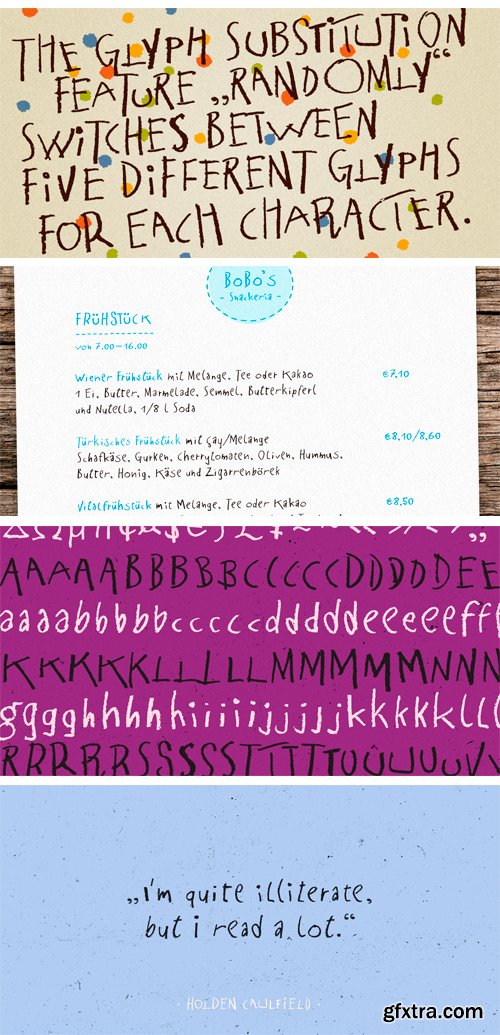 THE GLYPH SUBSTITUTION
FEATURE „RANDOMLY“
SWITCHES BETWEEN
FIVE DIFFERENT GLYPHS
FOR EACH CHARACTER.
BoBo's
- Snackeria -
FRÜHSTÜCK
von 7.00-16.00
Wiener Frühstück mit Melange, Tee oder Kakao €7,10
1 Ei, Butter, Marmelade, Semmel, Butterkipferl
und Nutella, 1/8 l Soda
Türkisches Frühstück mit Çay/Melange €8,10/8,60
Schafkäse, Gurken, Cherrytomaten, Oliven, Hummus,
Butter, Honig, Käse und Zigarrenbörek
Vitalfrühstück mit Melange, Tee oder Kakao €8,50
AAAAABBBBBCCCCCDDDDDEE
aaaaabbbbbcccccdddddeeeeefff
KKKKKLLLLLMMMMMNNN
ggggghhhhhiiiiijjjjjkkkkklll
RRRRRSSSSSTTTTTUUUUUV
„I'm quite illiterate,
but i read a lot.“
- HOLDEN CAULFIELD -
gfxtra.com